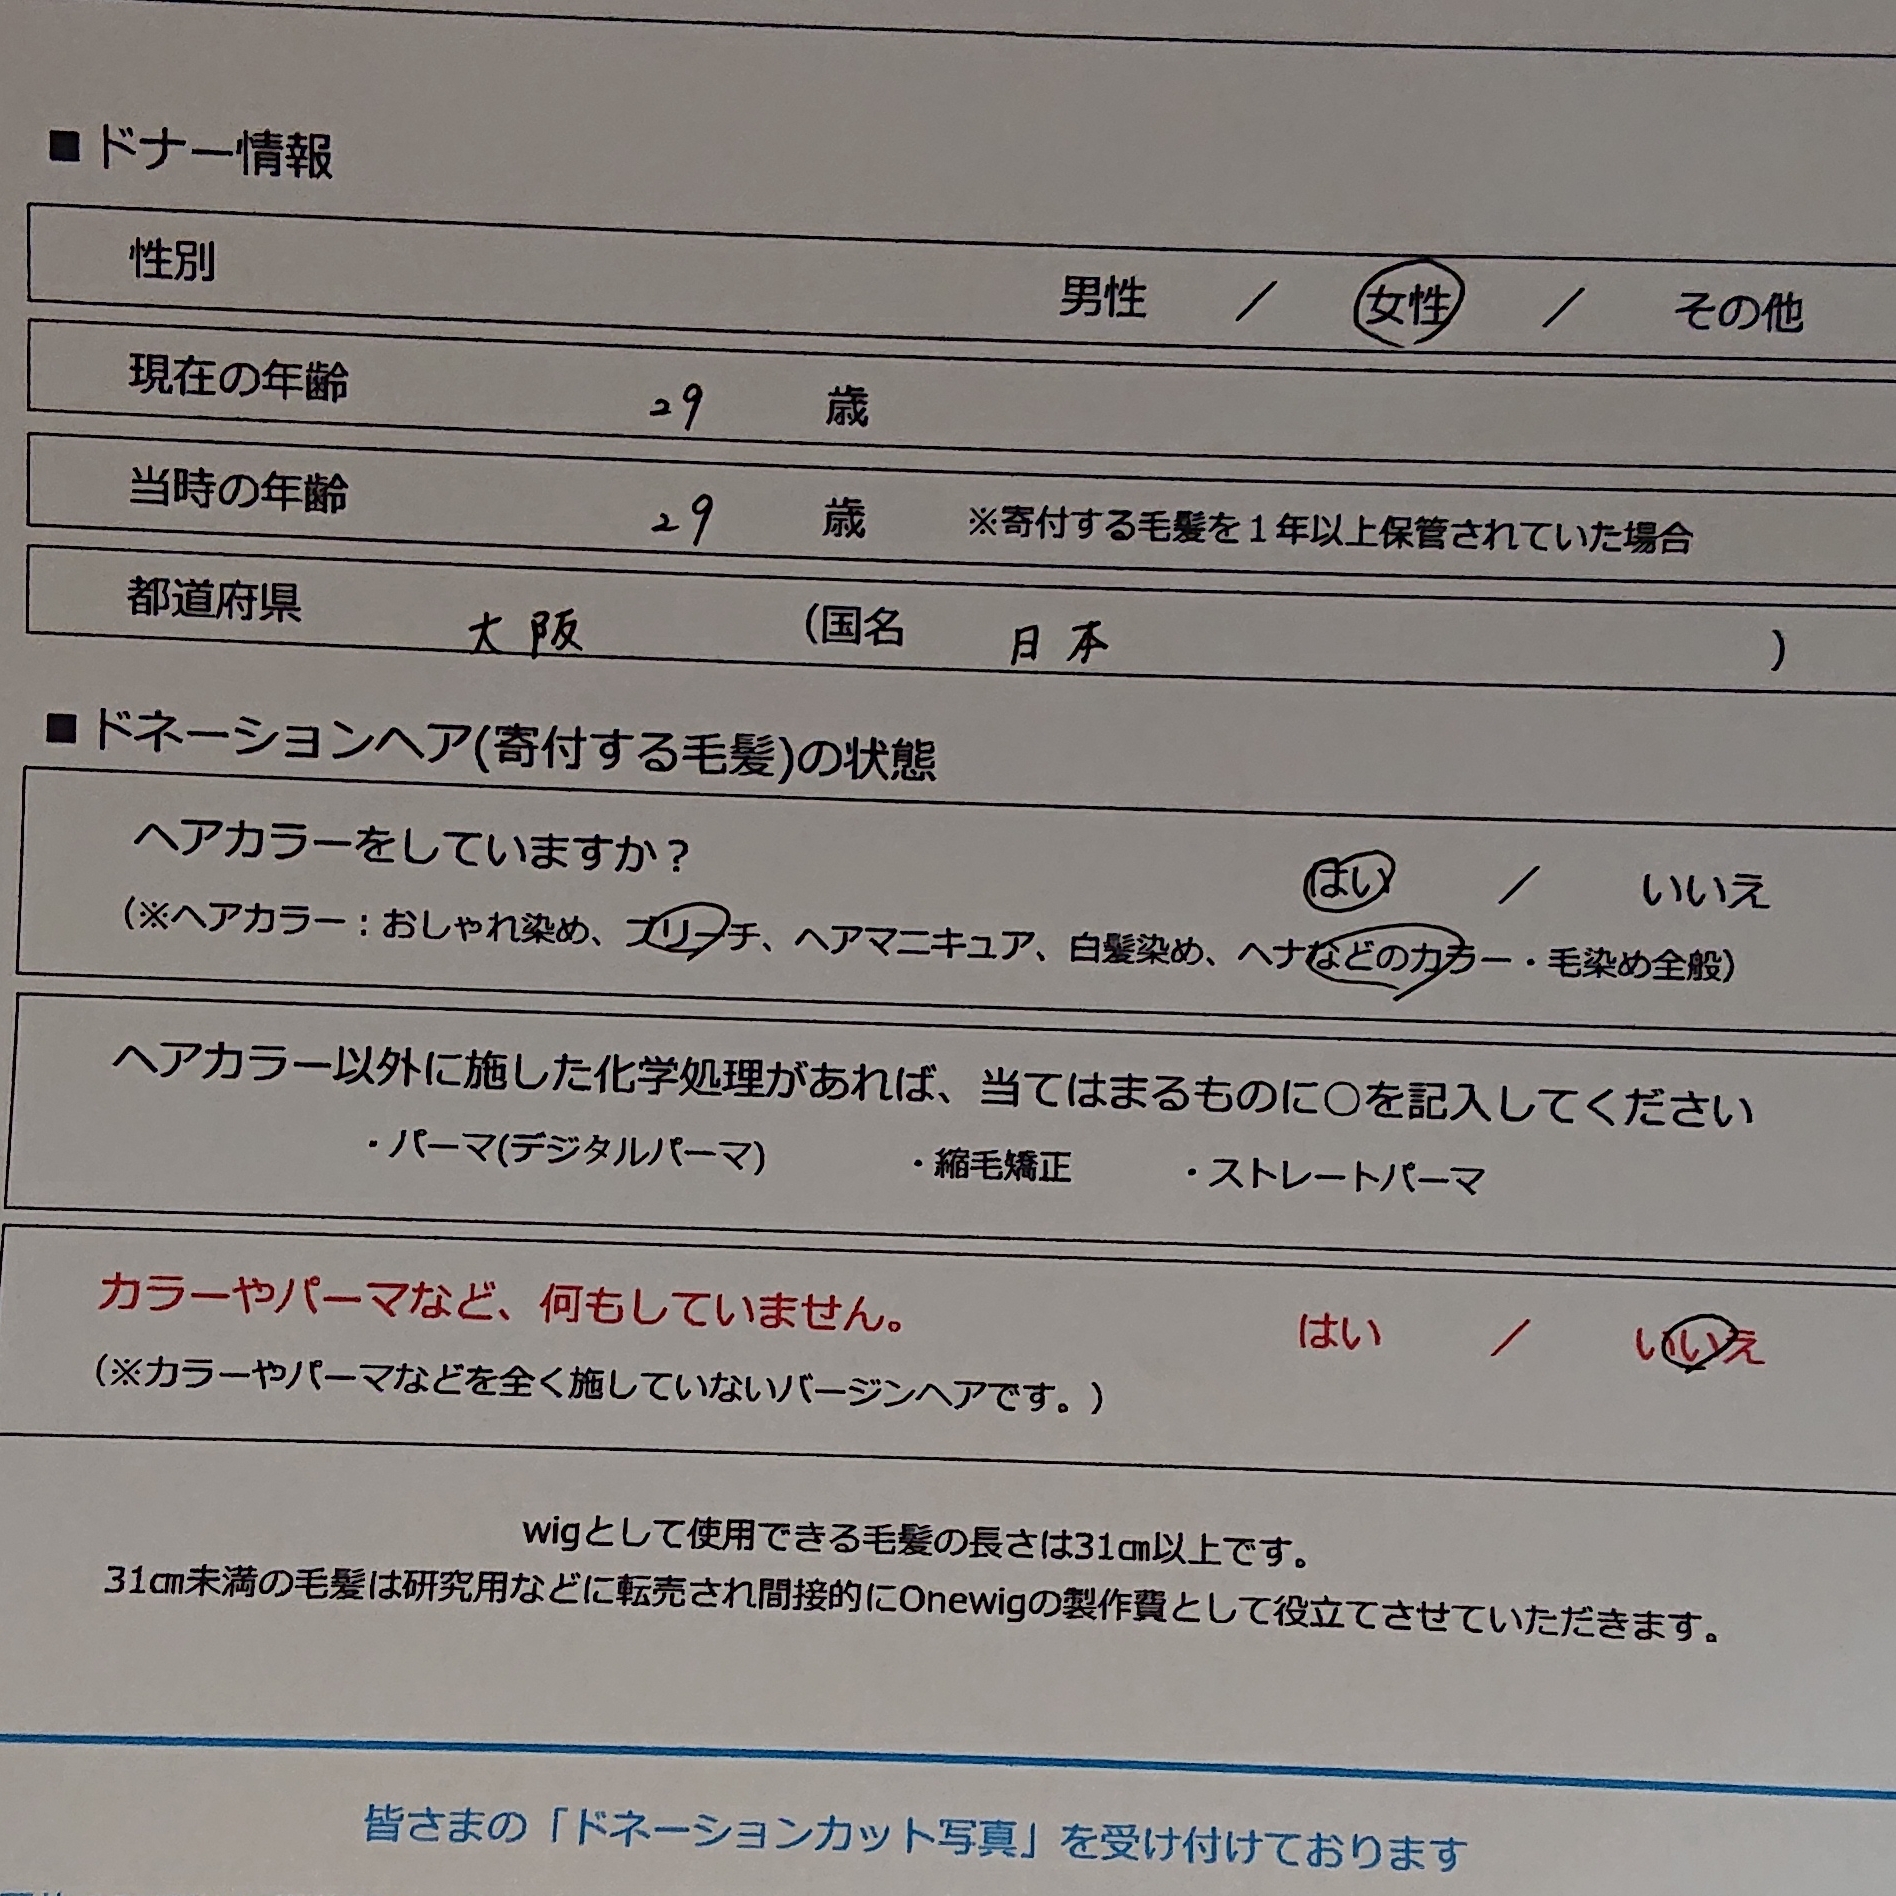 ■ドナー情報
性別 男性 / 女性 / その他
現在の年齢 29 歳
当時の年齢 29 歳 ※寄付する毛髪を1年以上保管されていた場合
都道府県 大阪 (国名 日本 )
■ドネーションヘア(寄付する毛髪)の状態
ヘアカラーをしていますか？ はい / いいえ
(※ヘアカラー：おしゃれ染め、ブリーチ、ヘアマニキュア、白髪染め、ヘナなどのカラー・毛染め全般)
ヘアカラー以外に施した化学処理があれば、当てはまるものに○を記入してください
・パーマ(デジタルパーマ) ・縮毛矯正 ・ストレートパーマ
カラーやパーマなど、何もしていません。 はい / いいえ
(※カラーやパーマなどを全く施していないバージンヘアです。)
wigとして使用できる毛髪の長さは31㎝以上です。
31㎝未満の毛髪は研究用などに転売され間接的にOnewigの製作費として役立てさせていただきます。
皆さまの「ドネーションカット写真」を受け付けております